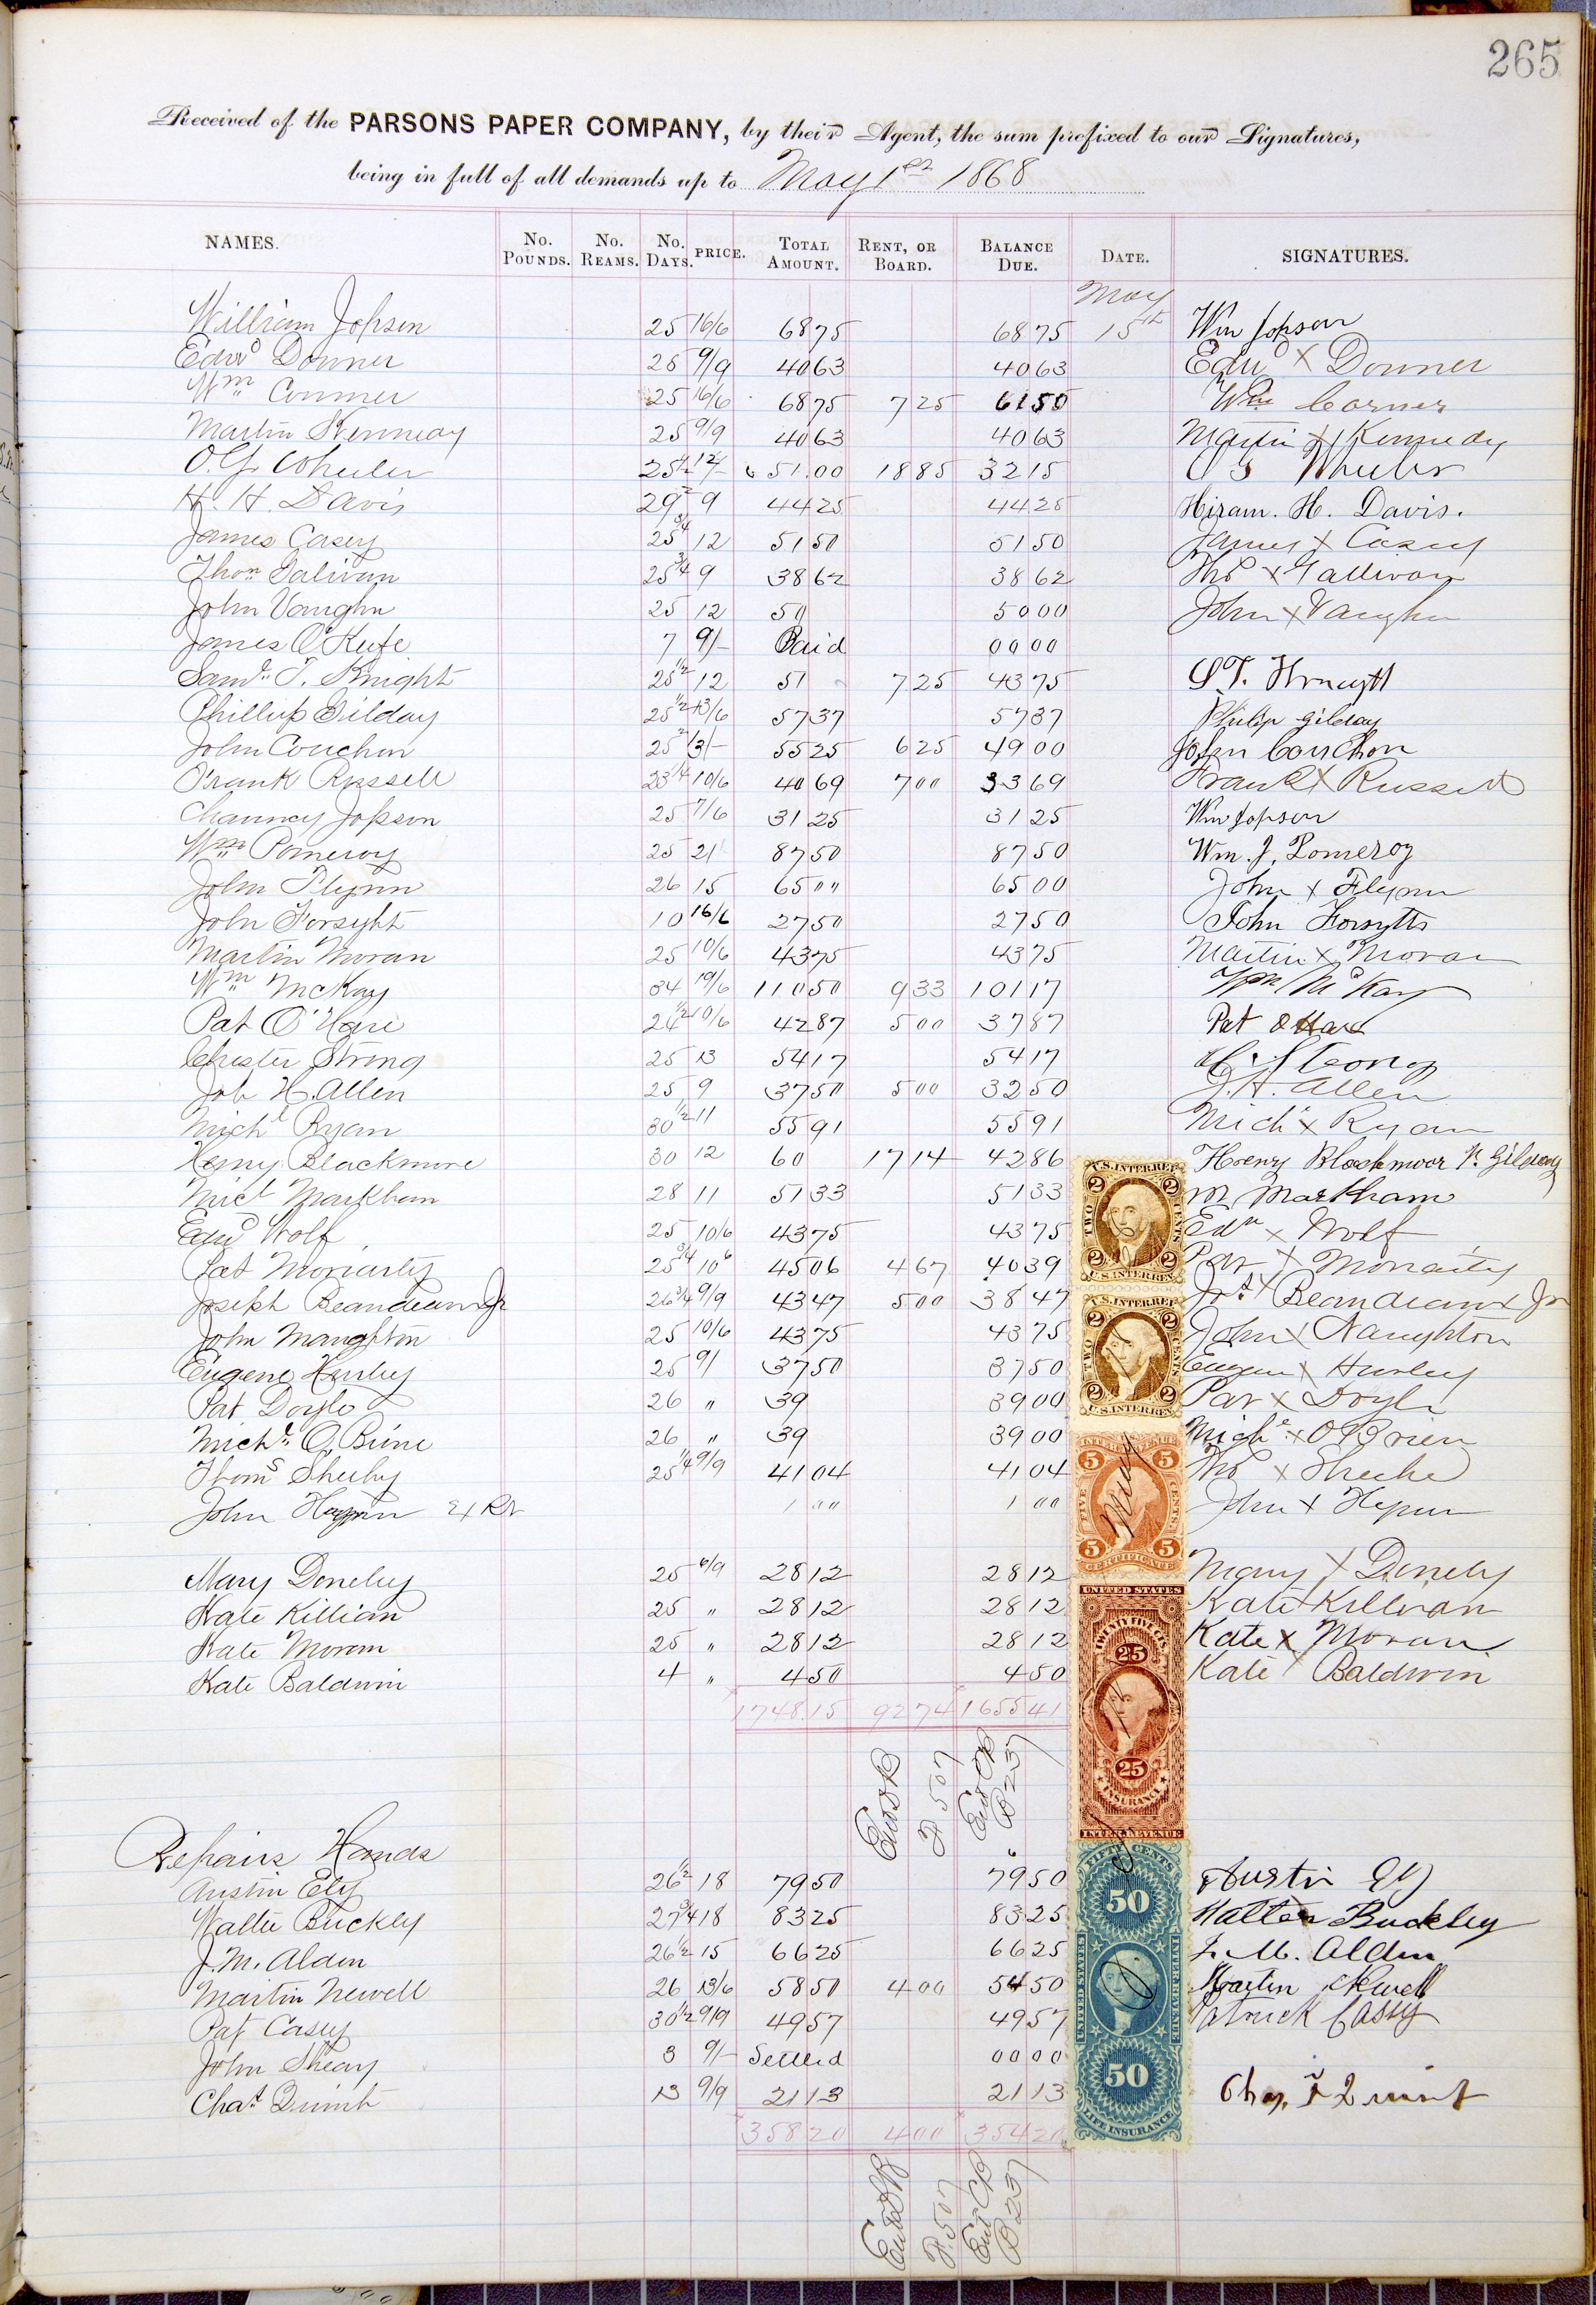 265
Received of the PARSONS PAPER COMPANY, by their Agent, the sum prefixed to our Signatures,
being in full of all demands up to May 1st 1868
NAMES. No. Pounds. No. Reams. No. Days. PRICE. Total Amount. Rent, or Board. Balance Due. Date. SIGNATURES.
May
William Jopson 25 16/6 68 75 68 75 15th Wm Jopson
Edwd Donner 25 9/9 40 63 40 63 Edwd X Donner
Wm Conner 25 16/6 68 75 7 25 61 50 Wm Corner
Martin Kennedy 25 9/9 40 63 40 63 Martin X Kennedy
O. G. Wheeler 25 1/2 12/- 51.00 18 85 32 15 O G Wheeler
H. H. Davis 29 1/2 9 44 25 44 25 Hiram. H. Davis.
James Casey 25 3/4 12 51 50 51 50 James X Casey
Thos Galivan 25 3/4 9 38 62 38 62 Thos X Gallivan
John Vaughn 25 12 50 50 00 John X Vaughn
James O'Keefe 7 9/- Paid 00 00
Saml. T. Knight 25 1/2 12 51 7 25 43 75 S. T. Knight
Phillip Gilday 25 1/2 13/6 57 37 57 37 Philip Gilday
John Couchon 25 1/2 13/- 55 25 6 25 49 00 John Couchon
Frank Russell 23 1/4 10/6 40 69 7 00 33 69 Frank X Russell
Chauncy Jopson 25 7/6 31 25 31 25 Wm Jopson
Wm Pomeroy 25 21/ 87 50 87 50 Wm. J. Pomeroy
John Flynn 26 15 65 " 65 00 John X Flynn
John Forsyht 10 16/6 27 50 27 50 John Forsyth
Martin Moran 25 10/6 43 75 43 75 Martin X Moran
Wm McKay 34 19/6 110 50 9 33 101 17 Wm McKay
Pat O'Hare 24 1/2 10/6 42 87 5 00 37 87 Pat OHare
Chester Strong 25 13 54 17 54 17 C. Strong
Job H. Allen 25 9 37 50 5 00 32 50 J. H. Allen
Michl Ryan 30 1/2 11 55 91 55 91 Michl X Ryan
Henry Blackmore 30 12 60 17 14 42 86 Henry Blackmoor P. Gilday
Micl Markham 28 11 51 33 51 33 M Markham
Edwd Wolf 25 10/6 43 75 43 75 Edw X Wolf
Pat Moriarty 25 3/4 10 6 45 06 4 67 40 39 Pat X Moriarty
Joseph Beaudeaux Jr 26 3/4 9/9 43 47 5 00 38 47 Jos X Beaudeaux Jr
John Maughton 25 10/6 43 75 43 75 John X Naughton
Eugene Hurley 25 9/ 37 50 37 50 Eugene X Hurley
Pat Doyle 26 " 39 39 00 Pat X Doyle
Michl. O Brine 26 " 39 39 00 Michl X OBrien
Thoms Sheehy 25 1/4 9/9 41 04 41 04 Thos X Sheehe
John 1 00 1 00 John X
Mary Donehy 25 6/9 28 12 28 12 Mary X Donehy
Kate Killian 25 " 28 12 28 12 Kate X Killian
Kate Moran 25 " 28 12 28 12 Kate X Moran
Kate Baldwin 4 " 4 50 4 50 Kate X Baldwin
1748.15 92 74 1655 41
Entd
P. 507
Ent CB
P 237
Repairs Hands
Austin Ely 26 1/2 18 79 50 79 50 Austin Ely
Walter Buckley 27 3/4 18 83 25 83 25 Walter Buckley
J. M. Alden 26 1/2 15 66 25 66 25 J. M. Alden
Martin Newell 26 13/6 58 50 4 00 54 50 Martin Newell
Pat Casey 30 1/2 9/9 49 57 49 57 Patrick Casey
John Sheay 3 9/- Settled 00 00
Chas Quint 13 9/9 21 13 21 13 Chas Quint
358 20 4 00 354 20
Entd
P. 507
Ent CB
P 237
U.S. INTER REV.
2 2
TWO CENTS
2 2
U.S. INTER REV.
U.S. INTER REV.
2 2
TWO CENTS
2 2
U.S. INTER REV.
INTER REVENUE
5 5
FIVE CENTS
5 5
CERTIFICATE
May
UNITED STATES
TWENTY FIVE CTS.
25
25
INSURANCE
INTER REVENUE
FIFTY CENTS
50
UNITED STATES INTER REVENUE
50
LIFE INSURANCE